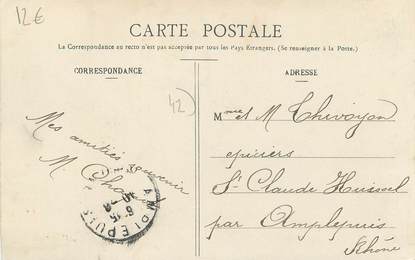 12€
CARTE POSTALE
La Correspondance au recto n'est pas acceptée par tous les Pays Étrangers. (Se renseigner à la Poste.)
CORRESPONDANCE
ADRESSE
42)
Mes amitiés souvenir
M.
AMPLEPUIS
6-15
Mme et M Thivoyon
épiciers
St Claude Huissel
par Amplepuis
Rhône